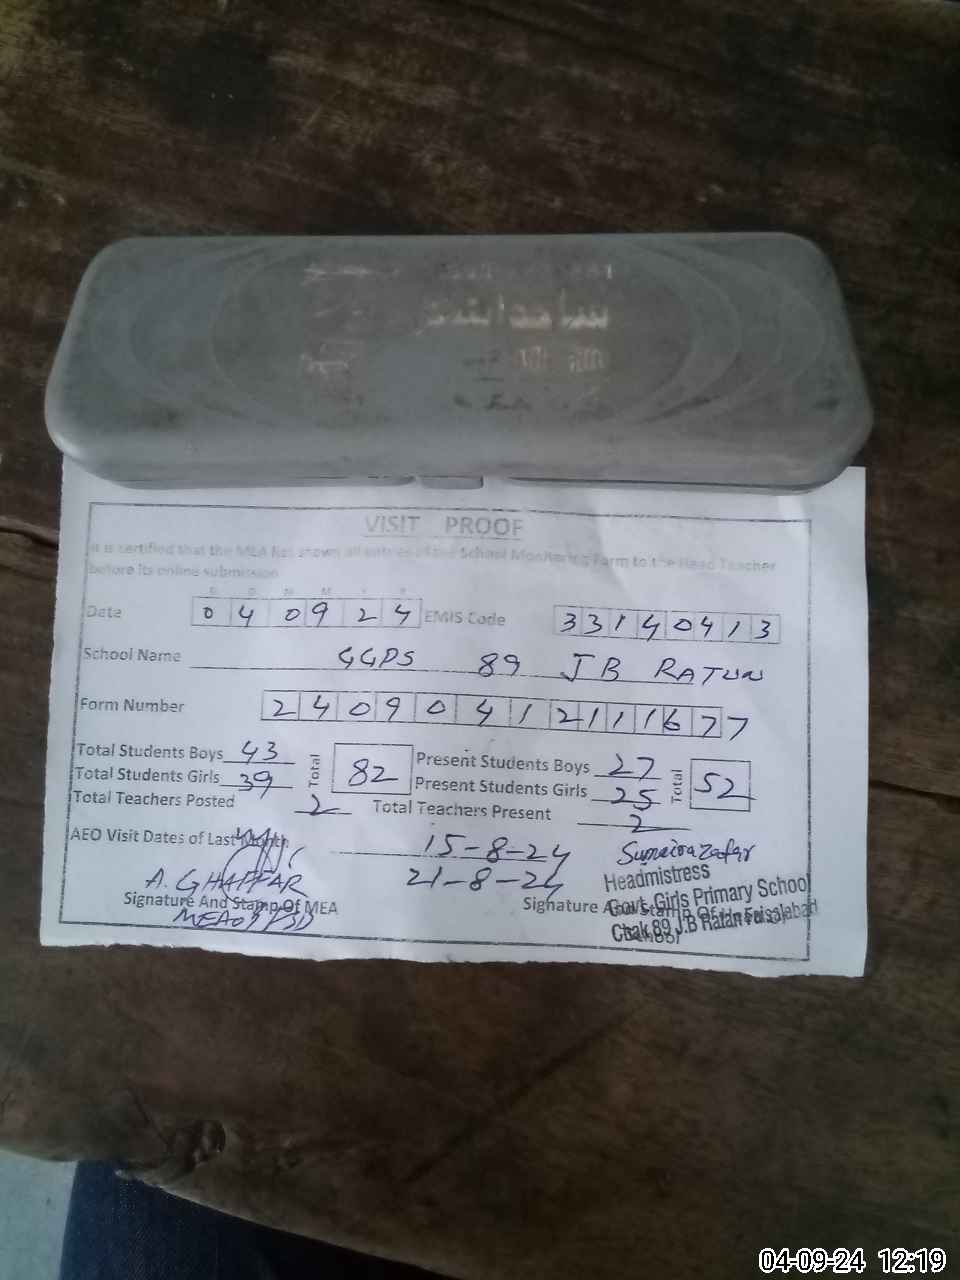 ساجد
VISIT PROOF
It is certified that the MEA has shown all entries of the School Monitoring Form to the Head Teacher
before its online submission
D D M M Y Y
Date 0 4 0 9 2 4 EMIS Code 3 3 1 4 0 4 1 3
School Name GGPS 89 JB RATUN
Form Number 2 4 0 9 0 4 1 2 1 1 1 6 7 7
Total Students Boys 43 Total 82 Present Students Boys 27 Total 52
Total Students Girls 39 Present Students Girls 25
Total Teachers Posted 2 Total Teachers Present 2
AEO Visit Dates of Last Month 15-8-24
21-8-24
Sumaira Zafar
A. GHAFFAR
Headmistress
Govt. Girls Primary School
Chak 89 J.B Ratan Faisalabad
Signature And Stamp Of MEA Signature And Stamp Of
04-09-24 12:19